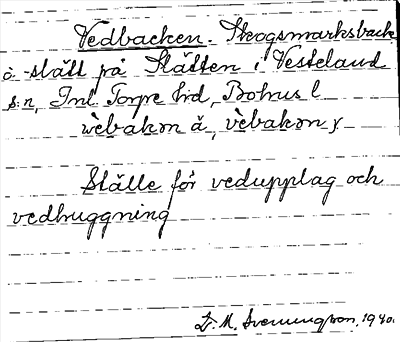 Vedbacken. Skogsmarksback
å -slätt på Slätten i Vesteland
s:n, Inl. Torpe hd, Bohus l.
vèbakən ä, vèbakən y.
Ställe för vedupplag och
vedhuggning
D. M. Svenungsson, 1940.